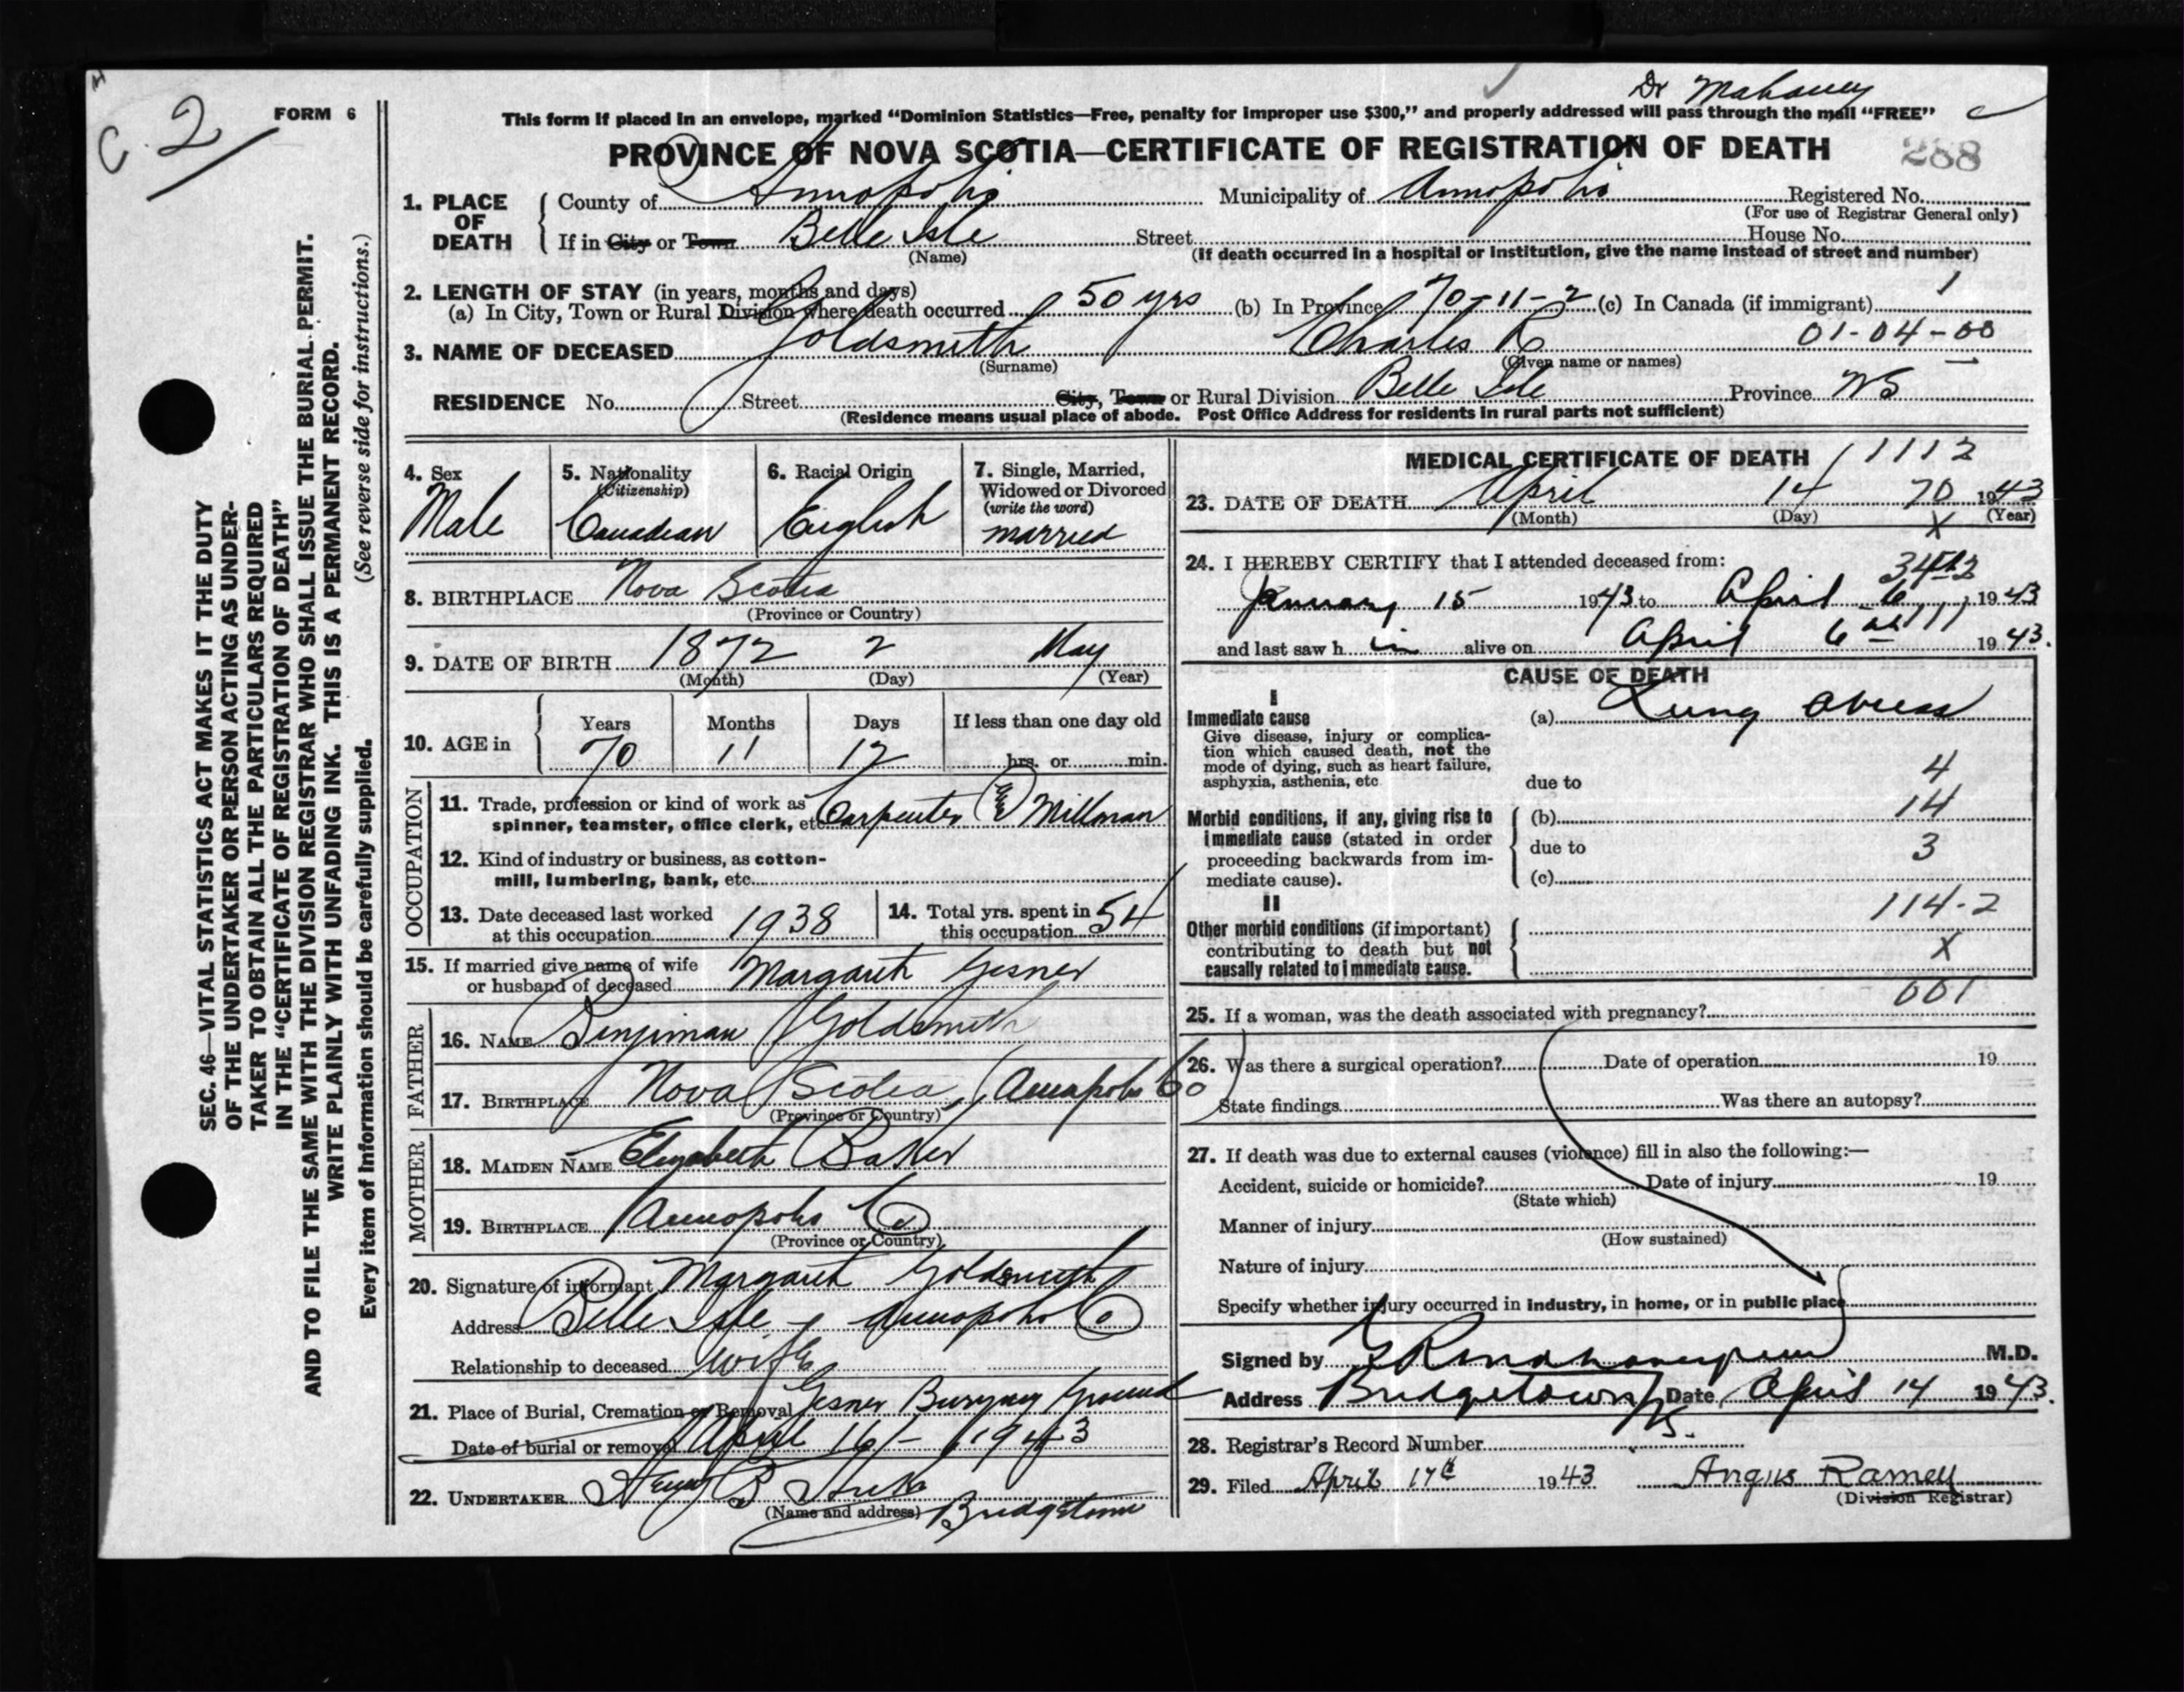 Dr Mahaney
C. 2
FORM 6
This form if placed in an envelope, marked “Dominion Statistics—Free, penalty for improper use $300,” and properly addressed will pass through the mail “FREE”
PROVINCE OF NOVA SCOTIA—CERTIFICATE OF REGISTRATION OF DEATH 288
1. PLACE OF DEATH County of Annapolis Municipality of Annapolis Registered No.
(For use of Registrar General only)
If in City or Town Belle Isle Street House No.
(Name) (If death occurred in a hospital or institution, give the name instead of street and number)
2. LENGTH OF STAY (in years, months and days)
(a) In City, Town or Rural Division where death occurred 50 yrs (b) In Province 70-11-2 (c) In Canada (if immigrant) 1
3. NAME OF DECEASED Goldsmith Charles R 01-04-00
(Surname) (Given name or names)
RESIDENCE No. Street City, Town or Rural Division Belle Isle Province NS
(Residence means usual place of abode. Post Office Address for residents in rural parts not sufficient)
4. Sex Male
5. Nationality (Citizenship) Canadian
6. Racial Origin English
7. Single, Married, Widowed or Divorced (write the word) married
8. BIRTHPLACE Nova Scotia
(Province or Country)
9. DATE OF BIRTH 1872 2 May
(Month) (Day) (Year)
10. AGE in Years Months Days If less than one day old
70 11 12 hrs. or min.
OCCUPATION
11. Trade, profession or kind of work as
spinner, teamster, office clerk, etc. Carpenter & Millman
12. Kind of industry or business, as cotton-
mill, lumbering, bank, etc.
13. Date deceased last worked
at this occupation 1938
14. Total yrs. spent in
this occupation 54
15. If married give name of wife
or husband of deceased Margaret Gesner
FATHER
16. NAME Benjiman Goldsmith
17. BIRTHPLACE Nova Scotia, (Annapolis Co)
(Province or Country)
MOTHER
18. MAIDEN NAME Elizabeth Baker
19. BIRTHPLACE Annapolis Co
(Province or Country)
20. Signature of informant Margaret Goldsmith
Address Belle Isle Annapolis Co
Relationship to deceased wife
21. Place of Burial, Cremation or Removal Gesner Burying Ground
Date of burial or removal April 16/- 1943
22. UNDERTAKER B Bridgetown
(Name and address)
MEDICAL CERTIFICATE OF DEATH 1112
23. DATE OF DEATH April 14 70 1943
(Month) (Day) (Year)
X
24. I HEREBY CERTIFY that I attended deceased from:
January 15 1943 to April 6 1943
and last saw h im alive on April 6 1943.
CAUSE OF DEATH
I
Immediate cause
Give disease, injury or complica-
tion which caused death, not the
mode of dying, such as heart failure,
asphyxia, asthenia, etc
(a) Lung abcess
due to 4
Morbid conditions, if any, giving rise to
immediate cause (stated in order
proceeding backwards from im-
mediate cause).
(b) 14
due to 3
(c)
II
Other morbid conditions (if important)
contributing to death but not
causally related to immediate cause.
114-2
X
001
25. If a woman, was the death associated with pregnancy?
26. Was there a surgical operation? Date of operation 19
State findings Was there an autopsy?
27. If death was due to external causes (violence) fill in also the following:—
Accident, suicide or homicide? Date of injury 19
(State which)
Manner of injury
(How sustained)
Nature of injury
Specify whether injury occurred in industry, in home, or in public place
Signed by M.D.
Address Bridgetown NS. Date April 14 1943.
28. Registrar’s Record Number
29. Filed April 17th 1943 Angus Ramey
(Division Registrar)
SEC. 46—VITAL STATISTICS ACT MAKES IT THE DUTY
OF THE UNDERTAKER OR PERSON ACTING AS UNDER-
TAKER TO OBTAIN ALL THE PARTICULARS REQUIRED
IN THE “CERTIFICATE OF REGISTRATION OF DEATH”
AND TO FILE THE SAME WITH THE DIVISION REGISTRAR WHO SHALL ISSUE THE BURIAL PERMIT.
WRITE PLAINLY WITH UNFADING INK. THIS IS A PERMANENT RECORD.
Every item of Information should be carefully supplied. (See reverse side for instructions.)